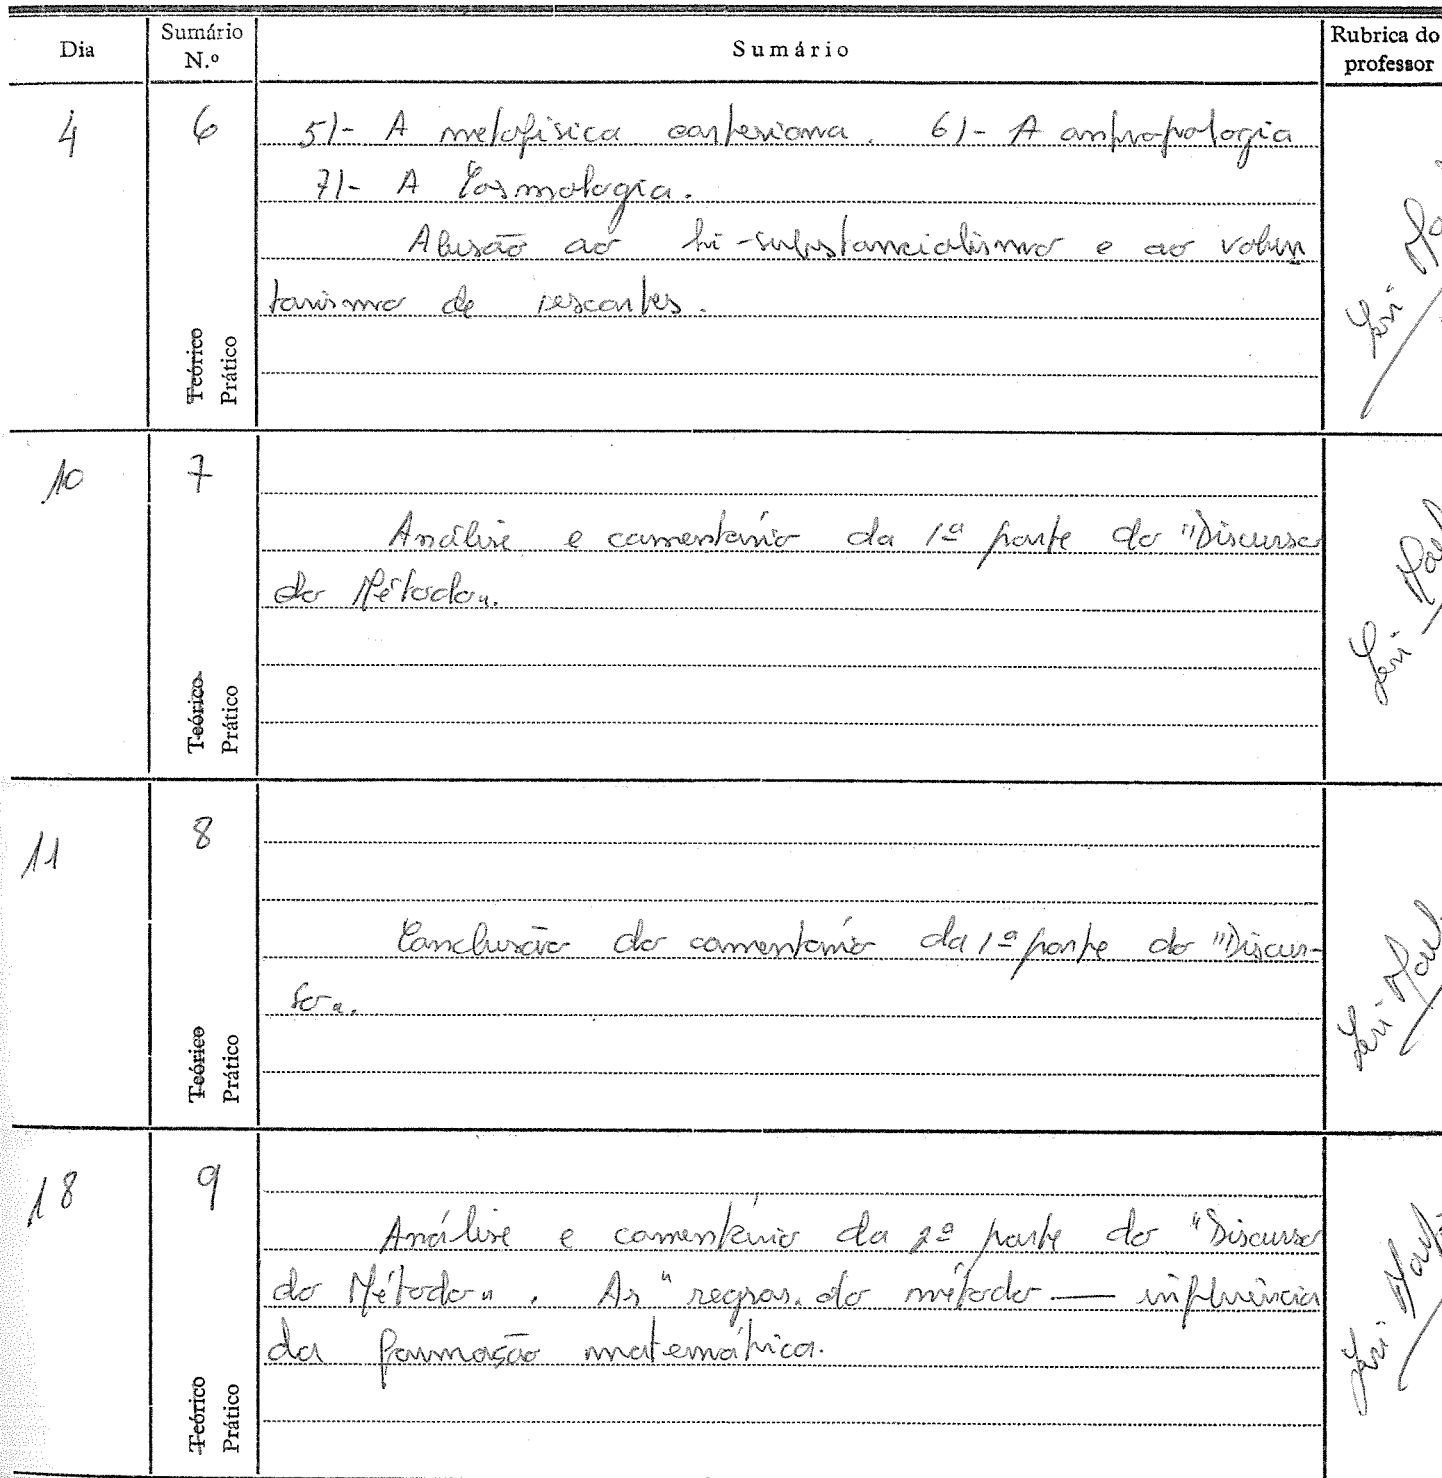 Dia
Sumário N.º
Sumário
Rubrica do professor
4
6
5)- A metafísica cartesiana. 6)- A antropologia
7)- A Cosmologia.
Alusão ao bi-substancialismo e ao volun
tarismo de Descartes.
Teórico
Prático
10
7
Análise e comentário da 1ª parte do "Discurso
do Método".
Teórico
Prático
11
8
Conclusão do comentário da 1ª parte do "Discur-
so".
Teórico
Prático
18
9
Análise e comentário da 2ª parte do "Discurso
do Método". As "regras do método — influência
da formação matemática.
Teórico
Prático